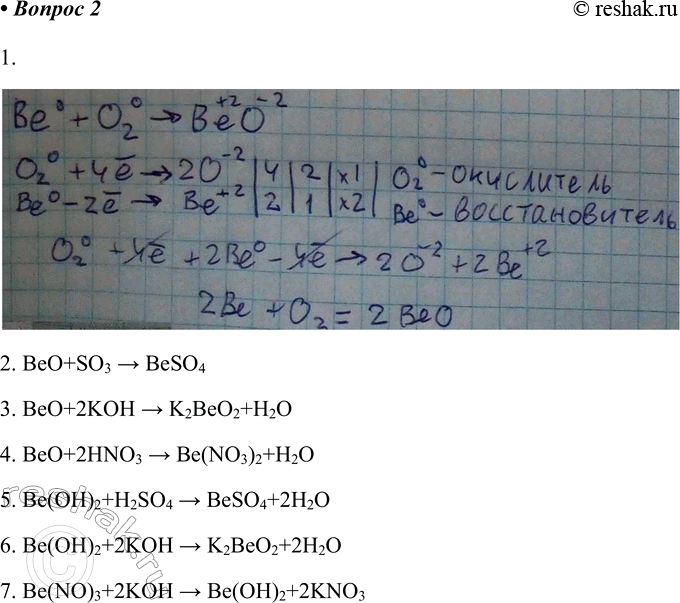 • Вопрос 2 © reshak.ru
1.
Be⁰ + O₂⁰ → Be⁺²O⁻²
O₂⁰ + 4ē → 2O⁻² | 4 | 2 | x1 | O₂⁰ - окислитель
Be⁰ - 2ē → Be⁺² | 2 | 1 | x2 | Be⁰ - восстановитель
O₂⁰ + 4ē + 2Be⁰ - 4ē → 2O⁻² + 2Be⁺²
2Be + O₂ = 2BeO
2. BeO+SO₃ → BeSO₄
3. BeO+2KOH → K₂BeO₂+H₂O
4. BeO+2HNO₃ → Be(NO₃)₂+H₂O
5. Be(OH)₂+H₂SO₄ → BeSO₄+2H₂O
6. Be(OH)₂+2KOH → K₂BeO₂+2H₂O
7. Be(NO)₃+2KOH → Be(OH)₂+2KNO₃
© reshak.ru